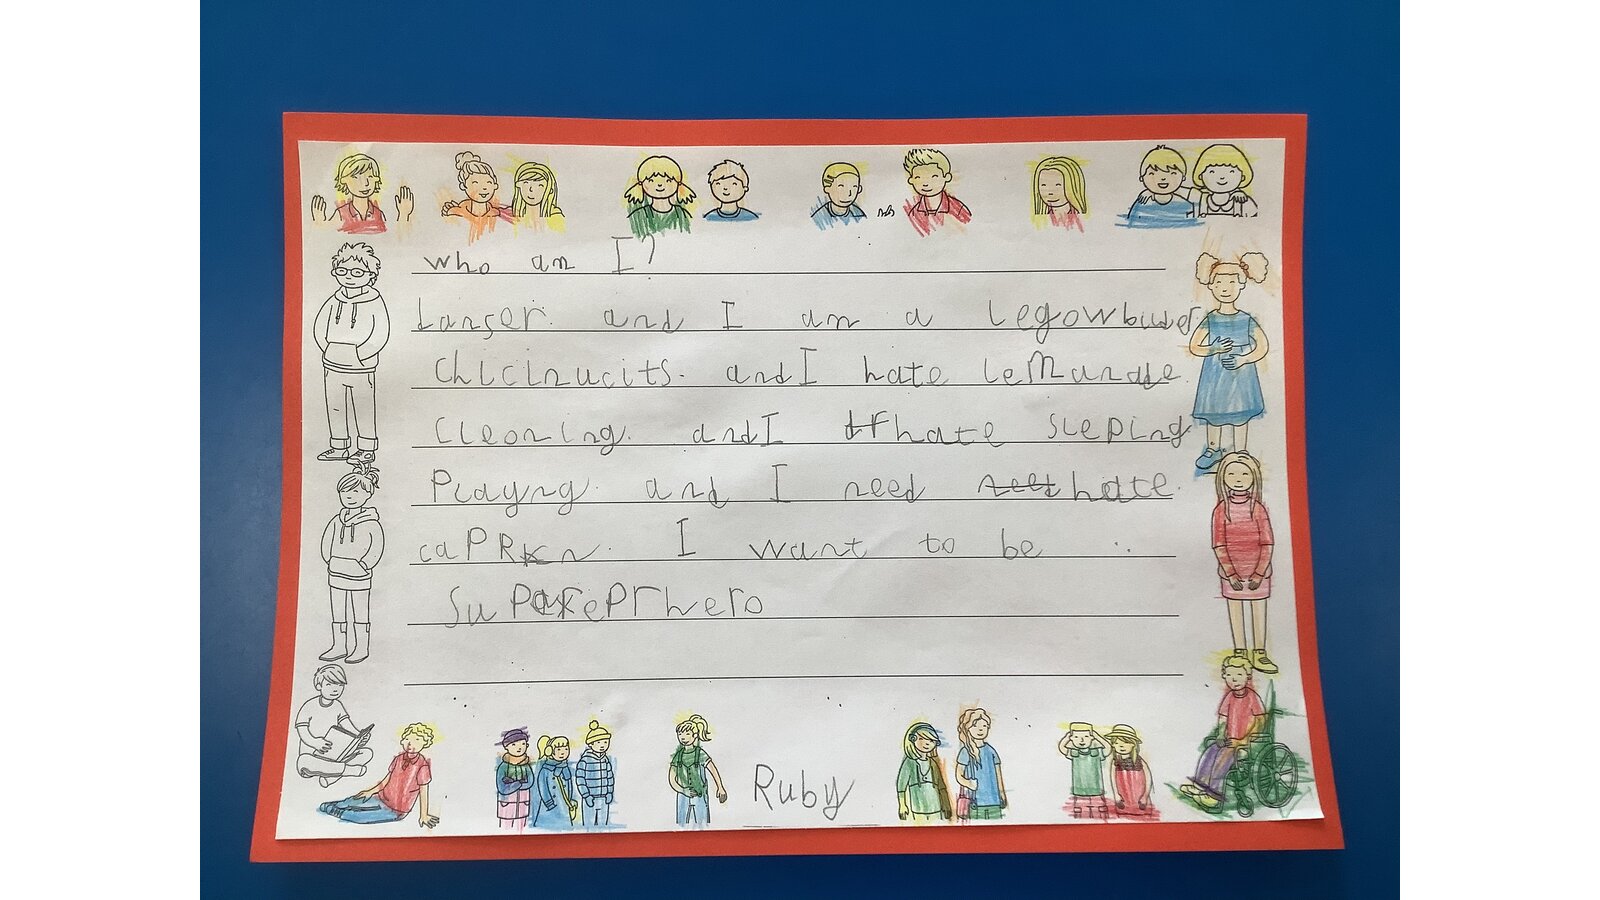 who am I?
danser. and I am a legowbuder
Chicinucits. and I hate lemunade.
cleoning. and I hate sleping
Playng. and I need hate.
I want to be ..
hero
Ruby